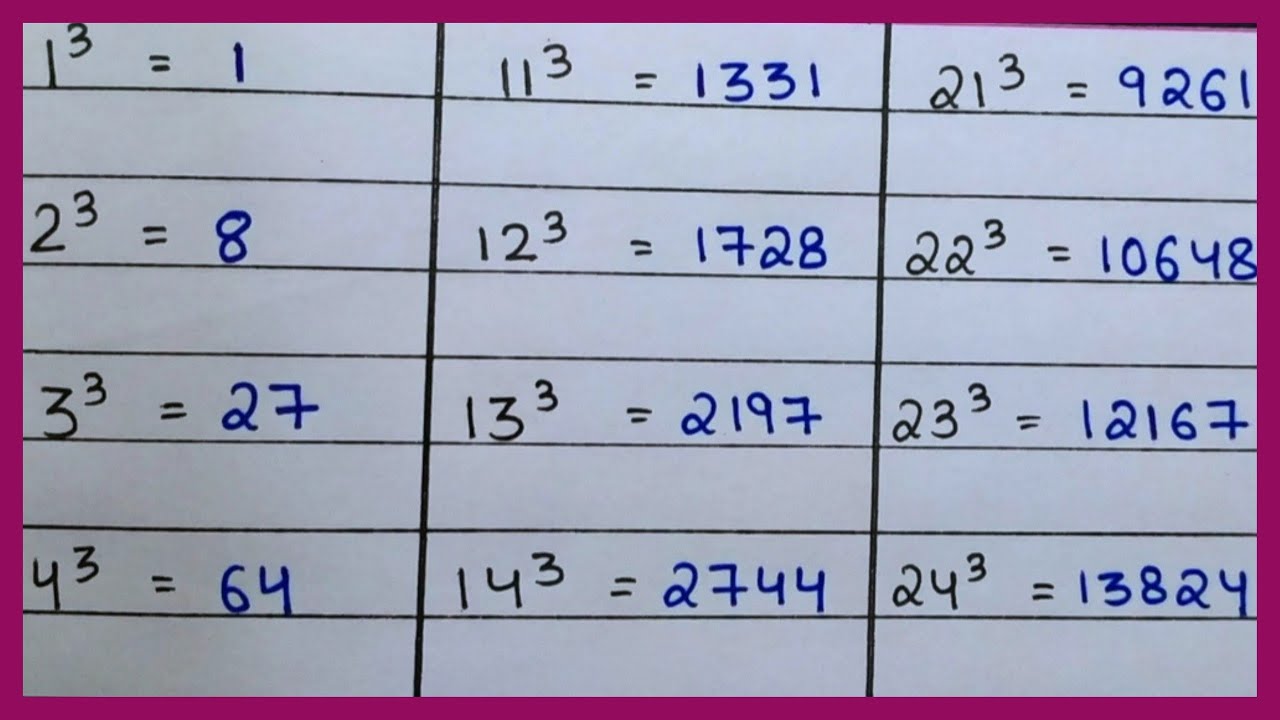 1³ = 1
11³ = 1331
21³ = 9261
2³ = 8
12³ = 1728
22³ = 10648
3³ = 27
13³ = 2197
23³ = 12167
4³ = 64
14³ = 2744
24³ = 13824